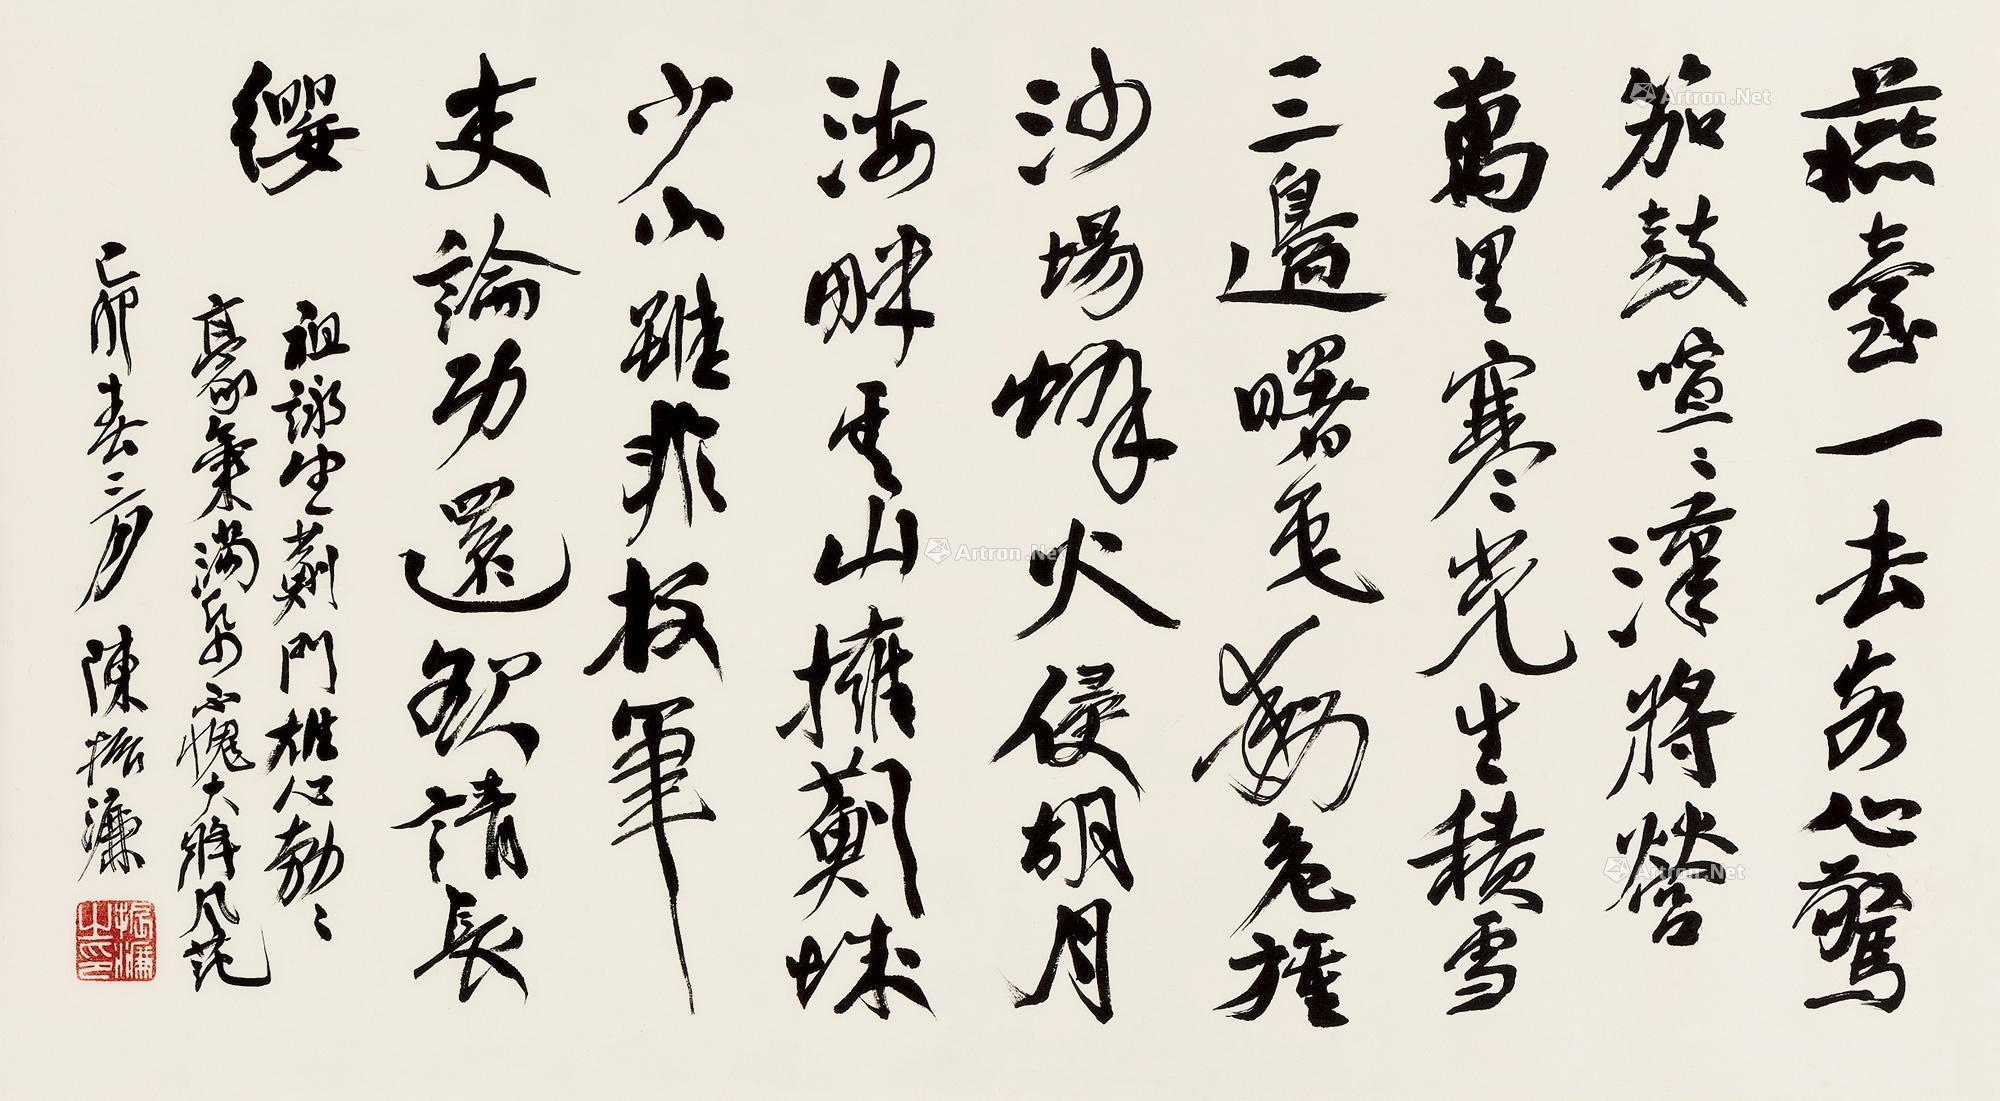 燕臺一去客心驚
笳鼓喧〻漢將營
萬里寒〻光生積雪
三邊曙色動危旌
沙場烽火侵胡月
海畔雲山擁薊城
少小雖非投筆
吏論功還欲請長
纓
祖詠望薊門雄心勃〻
豪氣滿紙不愧大將風范
己卯春三月 陳振濂
振濂之印
Artron.Net
Artron.Net
Artron.Net